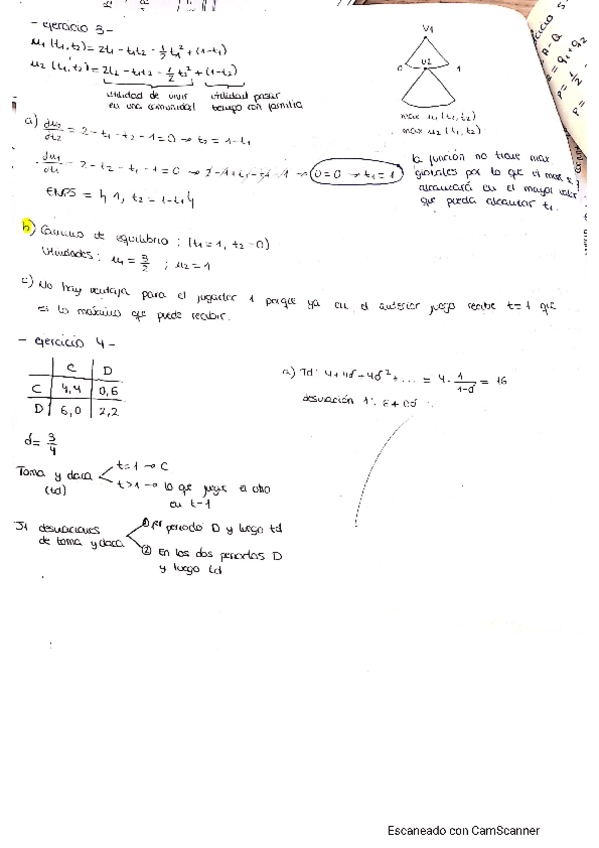 - ejercicio 3 -
u₁(t₁,t₂) = 2t₁ - t₁t₂ - ½t₁² + (1-t₁)
u₂(t₁,t₂) = 2t₂ - t₁t₂ - ½t₂² + (1-t₂)
utilidad de vivir en una comunidad
utilidad pasar tiempo con familia
V1
0 V2 1
max u₁(t₁,t₂)
max u₂(t₁,t₂)
a) = 2 - t₁ - t₂ - 1 = 0 → t₂ = 1 - t₁
= 2 - t₂ - t₁ - 1 = 0 → 0=0 → t₁=1
la función no tiene max
globales por lo que el max se
alcanzará en el mayor valor
que pueda alcanzar t₁.
ENPS = { 1, t₂ = 1-t₁ }
b) Camino de equilibrio : (t₁=1, t₂=0)
Utilidades : u₁ = 3/2 ; u₂ = 1
c) No hay ventaja para el jugador 1 porque ya en el anterior juego recibe t=1 que
es lo máximo que puede recibir.
- ejercicio 4 -
C D
C 4,4 0,6
D 6,0 2,2
d = 3/4
a) Td: 4 + 4δ + 4δ² + ... = 4 · 1/(1-δ) = 16
desviación 1:
Toma y daca (td)
t=1 → C
t>1 → lo que juegue el otro
en t-1
desviaciones
de toma y daca
① periodo D y luego td
② En los dos periodos D
y luego td
Escaneado con CamScanner